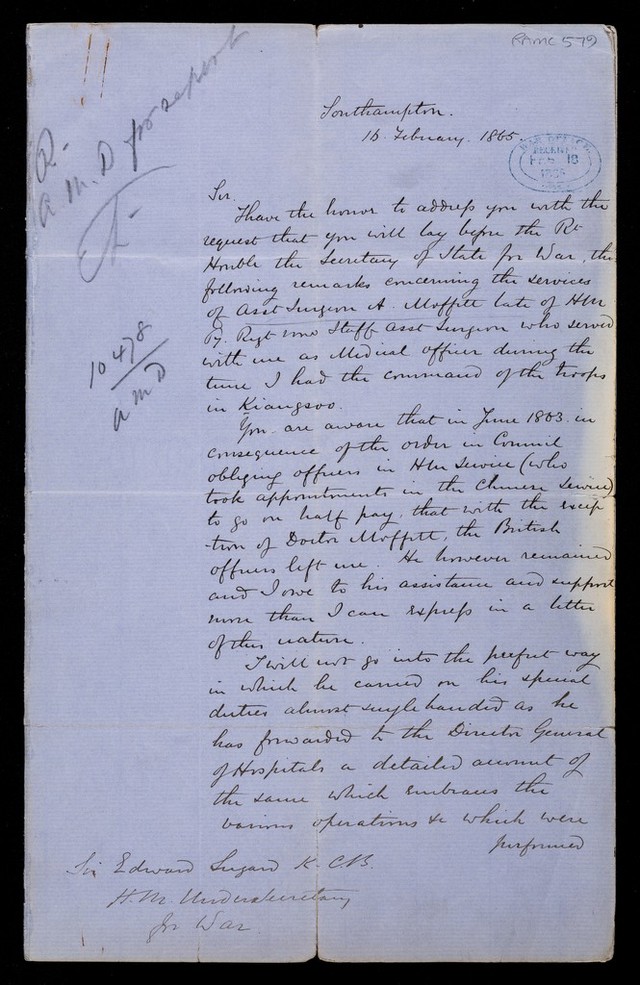 RAMC 579
A. M. D for report
10478
A M D
Southampton.
16. February. 1865.
WAR OFFICE
RECEIVED
FEB 18
1865
Sir.
I have the honor to address you with the
request that you will lay before the Rt
Honble the Secretary of State for War, the
following remarks concerning the services
of Asst Surgeon A. Moffitt late of HM
67. Regt now Staff Asst Surgeon who served
with me as Medical officer during the
time I had the command of the troops
in Kiangsoo.
You are aware that in June 1863. in
consequence of the order in Council
obliging officers in HM Service (who
took appointments in the Chinese Service)
to go on half pay, that with the excep
-tion of Doctor Moffitt, the British
officers left me. He however remained
and I owe to his assistance and support
more than I can express in a letter
of this nature.
I will not go into the perfect way
in which he carried on his special
duties almost singlehanded as he
has forwarded to the Director General
of Hospitals a detailed account of
the same which embraces the
various operations &c which were
performed
Sir Edward Lugard K. CB.
H. M. Undersecretary
for War